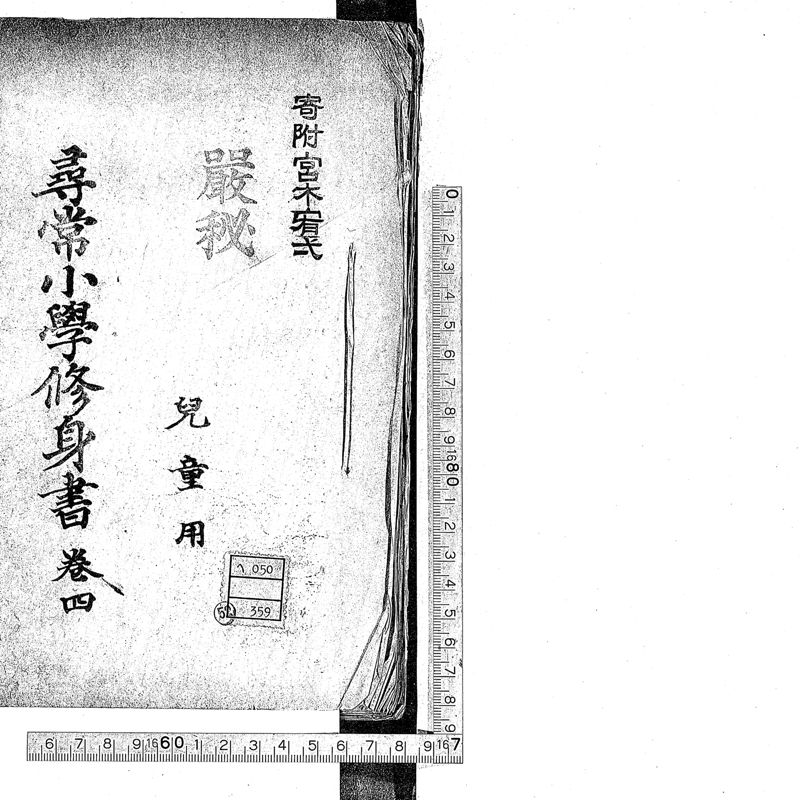 寄附宮木宥弌
嚴秘
兒童用
尋常小學修身書 卷四
050
359
52
0 1 2 3 4 5 6 7 8 9 16 80 1 2 3 4 5 6 7 8 9
6 7 8 9 16 60 1 2 3 4 5 6 7 8 9 16 7